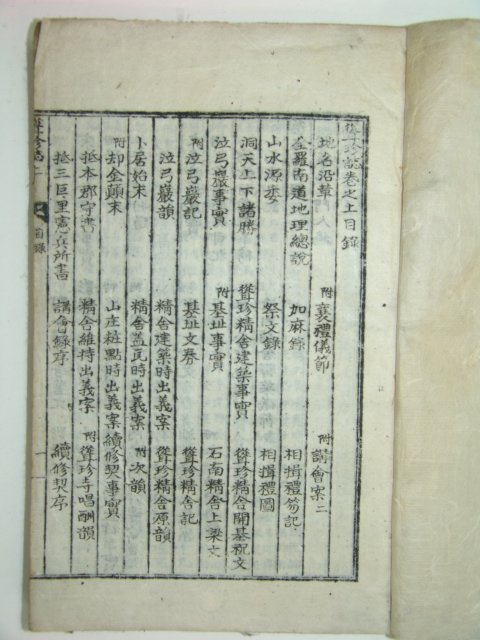 聳珍誌卷之上目錄
地名沿革 附襄禮儀節 附講會案二
全羅南道地理總說 加麻錄 相揖禮笏記
山水源委 祭文錄 相揖禮圖
洞天上下諸勝 聳珍精舍建築事實 聳珍精舍開基祝文
泣弓巖事實 附基址事實 石南精舍上梁文
附泣弓巖記 基址文券 聳珍精舍記
泣弓巖韻 精舍建築時出義案 聳珍精舍原韻
卜居始末 精舍盖瓦時出義案 附次韻
附却金顛末 山庄粧點時出義案 續修契事實
抵本郡守書 精舍維持出義案 附聳珍寺唱酬韻
抵三巨里憲兵所書 講會錄序 續修契序
聳珍誌上 目錄 一